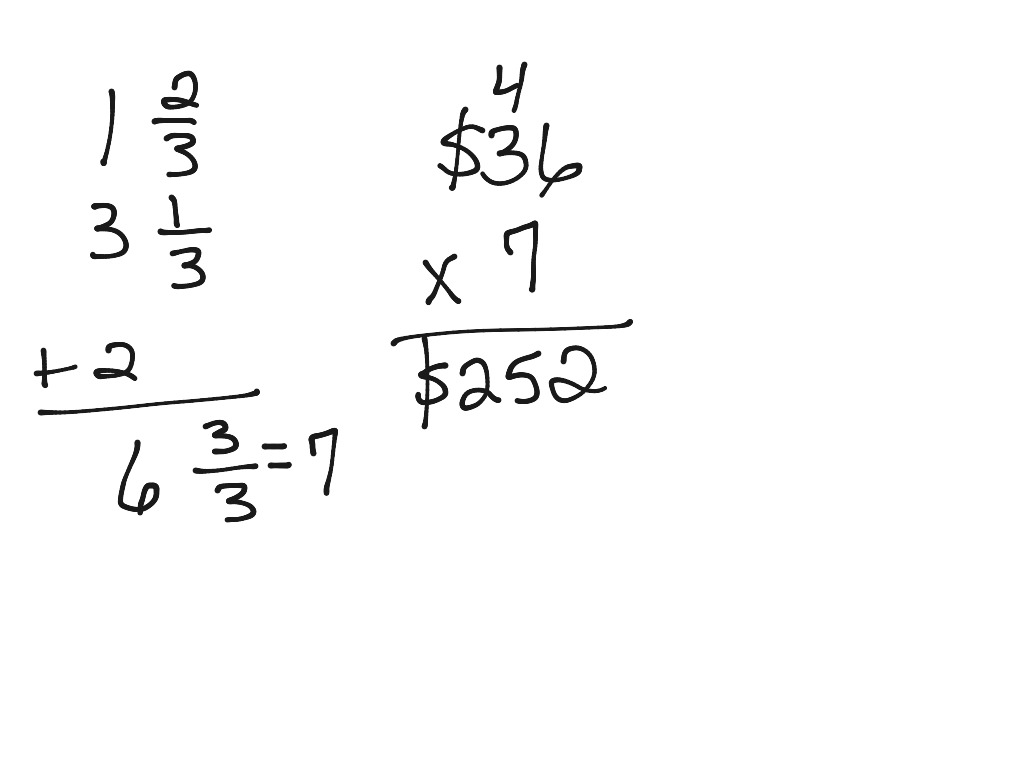 1 2/3
3 1/3
+ 2
6 3/3 = 7
4
$36
x 7
$252